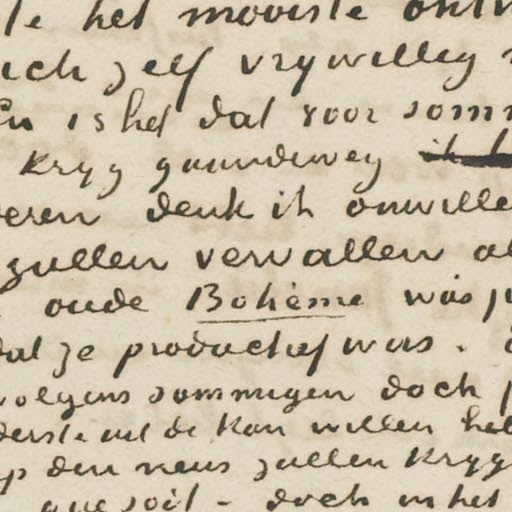 te het mooiste ont
zich zelf vrywillig
En is het dat voor somm
kryg gaandeweg ik
eren denk ik onwille
zullen vervallen al
oude Bohème was ju
dat ze productief was.
volgens sommigen doch
derste uit de kan willen heb
op den neus zullen kryg
que soit - doch in het